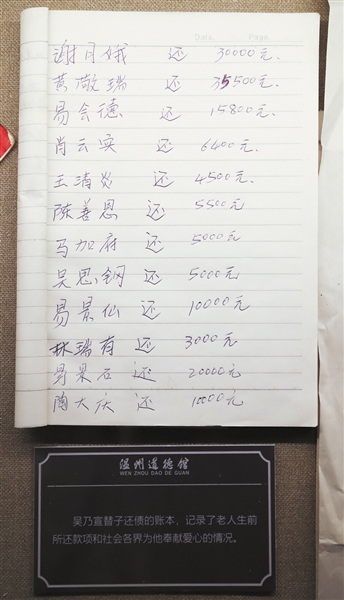 Date. Page.
谢月娥 还 30000元.
黄敬瑞 还 35500元.
易会德 还 15800元.
肖云实 还 6400元.
王清炎 还 4500元.
陈善恩 还 5500元
马加府 还 5000元
吴思钢 还 5000元
易景仙 还 10000元
林瑞有 还 3000元
易果石 还 20000元
陶大庆 还 10000元
温州道德馆
WEN ZHOU DAO DE GUAN
吴乃宣替子还债的账本，记录了老人生前
所还款项和社会各界为他奉献爱心的情况。